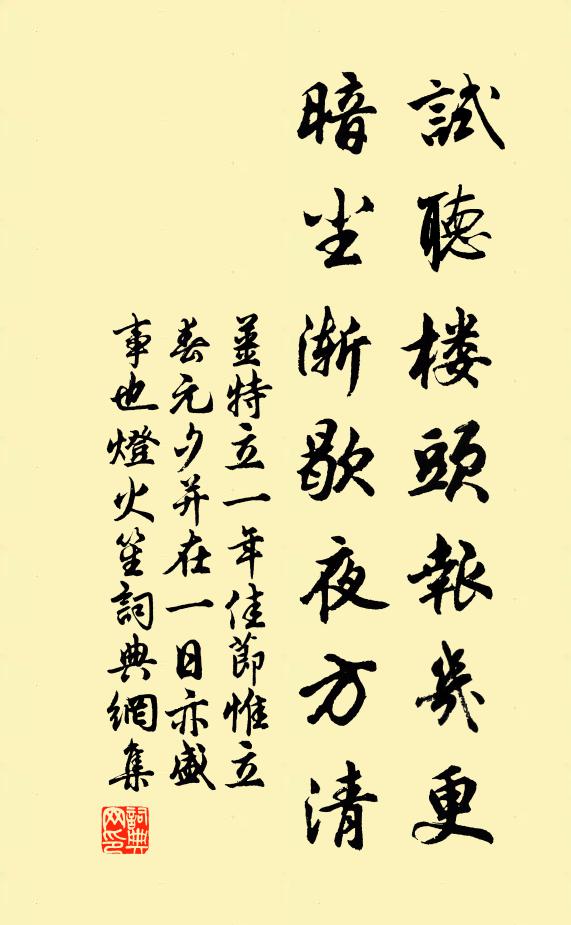 試聽楼頭報幾更
暗尘漸歇夜方清
姜特立一年佳節惟立
春元夕并在一日亦盛
事也燈火笙詞典網集
詞典網印